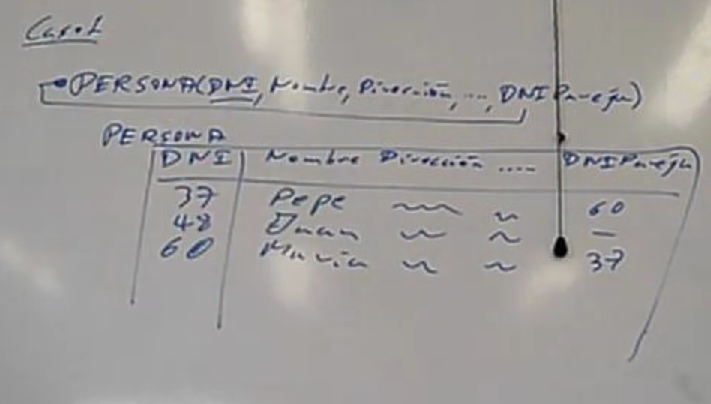 Caso 1
PERSONA(DNI, Nombre, Dirección, ..., DNIPareja)
PERSONA
DNI Nombre Dirección .... DNIPareja
37 Pepe 60
48 Juan —
60 María 37